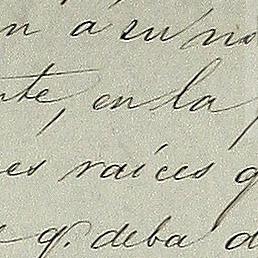 n a su no
nte, en la
es raíces q
q. deba d